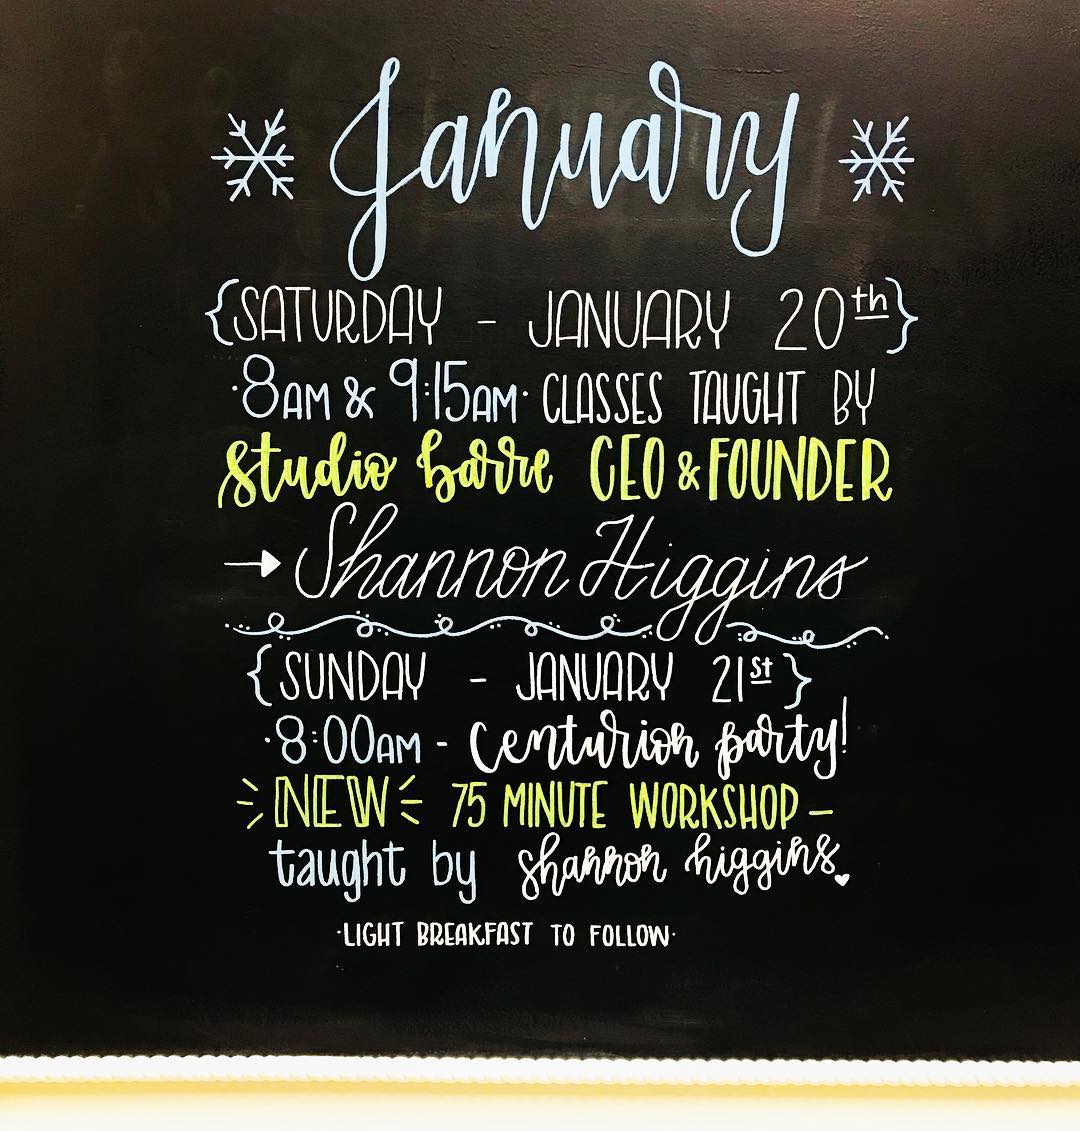 January
{SATURDAY - JANUARY 20th}
·8AM & 9:15AM· CLASSES TAUGHT BY
studio barre CEO & FOUNDER
→ Shannon Higgins
{SUNDAY - JANUARY 21st}
·8:00AM - Centurion party!
NEW 75 MINUTE WORKSHOP -
taught by shannon higgins
·LIGHT BREAKFAST TO FOLLOW·